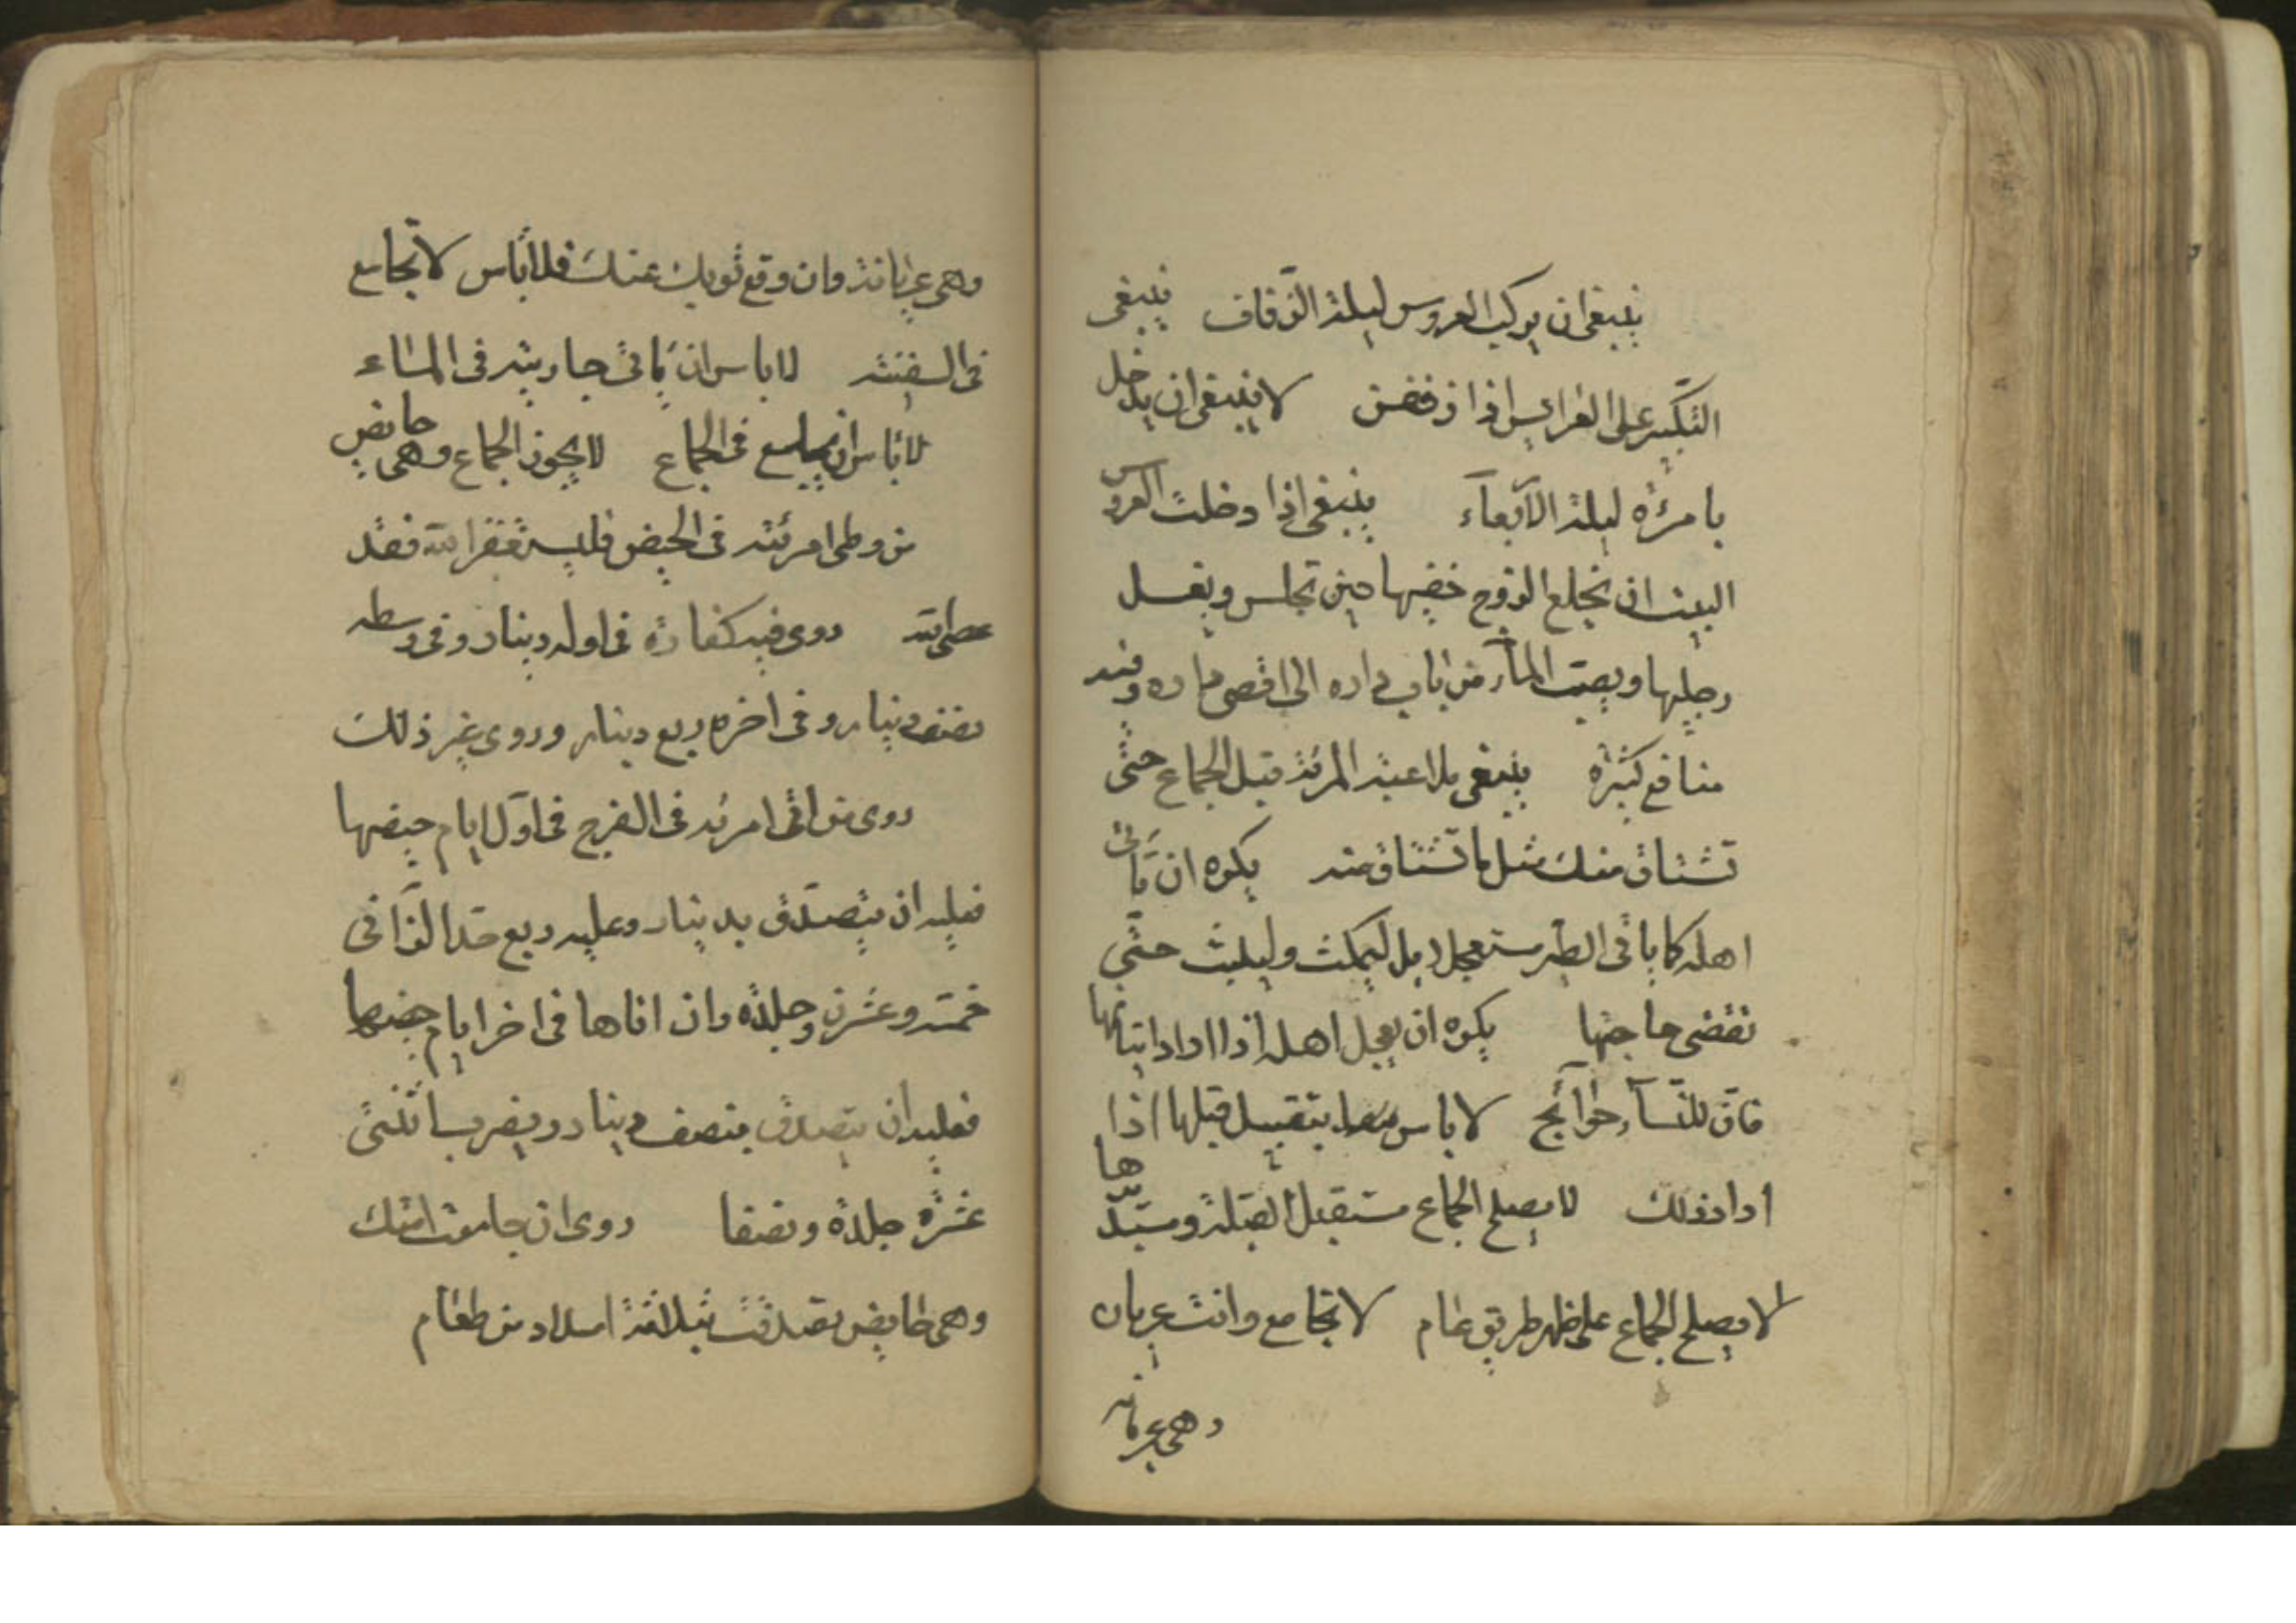 ينبغی ان يركب العروس ليلة الزفاف ينبغی
التكبير علی العرايس اذا زففن لا ينبغی ان يدخل
بامرئة ليلة الاربعآء ينبغی اذا دخلت العروس
البيت ان يخلع الزوج خفيها حين تجلس ويغسل
رجليها ويصب المآء من باب داره الی اقصی داره وفيه
منافع كثيرة ينبغی ملاعبة المرئة قبل الجماع حتی
تشتاق منك مثل ما تشتاق منه يكره ان يأتی
اهله كما ياتی الطير مستعجلا بل ليمكث وليلبث حتی
تقضی حاجتها يكره ان يعجل اهله اذا اراد اتيانها
فان للنسآء حوآئج لا باس بتقبيل قبلها اذا
اراد ذلك لا يصلح الجماع مستقبل القبلة ومستدبرها
لا يصلح الجماع علی ظهر طريق عام لا تجامع وانت عريان
وهی عريانه
وهی عريانة وان وقع ثوبك عنك فلا باس لا تجامع
فی السفينة لا باس ان ياتی جاريته فی المآء
لا باس ان فی الجماع لا يجوز الجماع وهی حايض
من وطی امرئته فی الحيض فليستغفر الله فقد
عصی الله روی فيه كفارة فی اوله دينار وفی وسطه
نصف دينار وفی اخره ربع دينار وروی غير ذلك
روی من اتی امرئه فی الفرج فی اول ايام حيضها
فعليه ان يتصدق بدينار وعليه ربع حد الزانی
خمسة وعشرون جلدة وان اتاها فی اخر ايام حيضها
فعليه ان يتصدق بنصف دينار ويضرب اثنتی
عشرة جلدة ونصفا روی ان جامعت امتك
وهی حايض تصدقت بثلاثة امداد من طعام